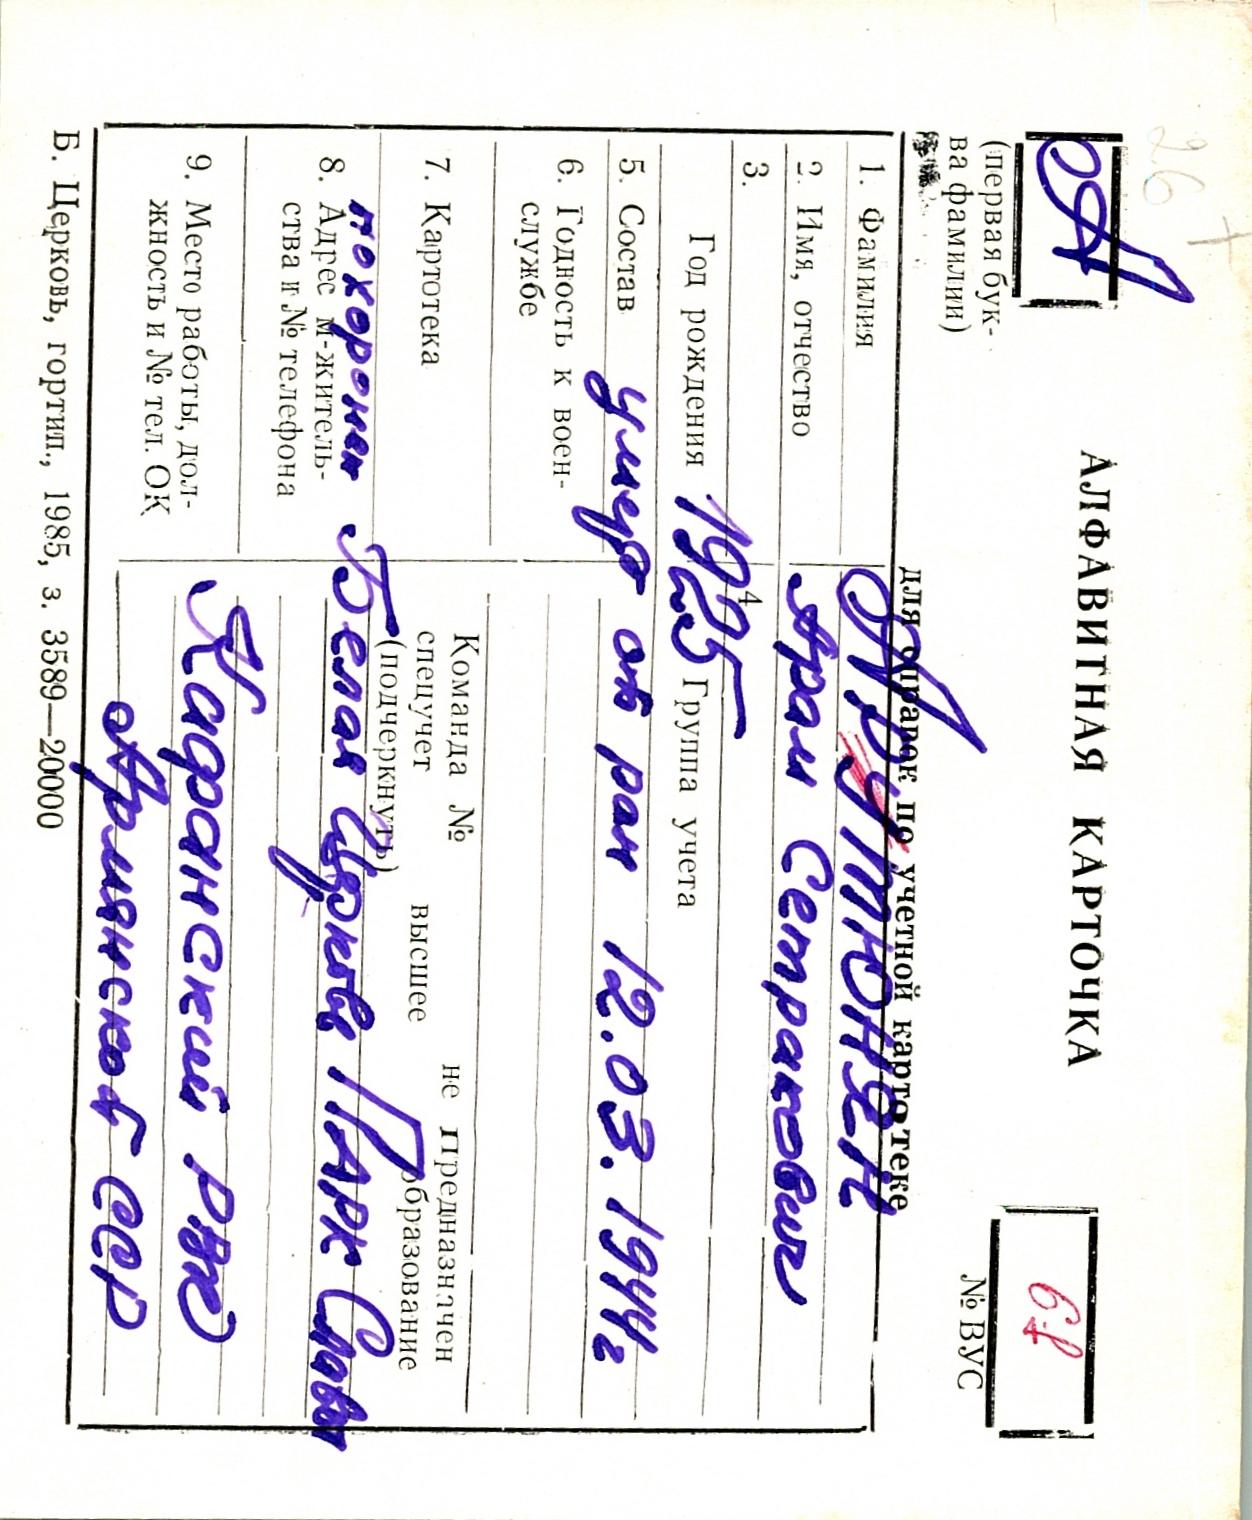 26 +
А
(первая бук-
ва фамилии)
АЛФАВИТНАЯ КАРТОЧКА
для справок по учетной картотеке
№ ВУС
1. Фамилия АРУТЮНЯН
2. Имя, отчество Арам Сетракович
3.
Год рождения 1925 4 Группа учета
5. Состав умер от ран 12.03.1944г
6. Годность к воен-
службе
7. Картотека
Команда № не предназначен
спецучет высшее образование
(подчеркнуть)
похоронен Белая Церковь Парк Славы
8. Адрес м-житель-
ства и № телефона
9. Место работы, дол-
жность и № тел. ОК
Кафанский РВК
Армянской ССР
Б. Церковь, гортип., 1985, з. 3589—20000